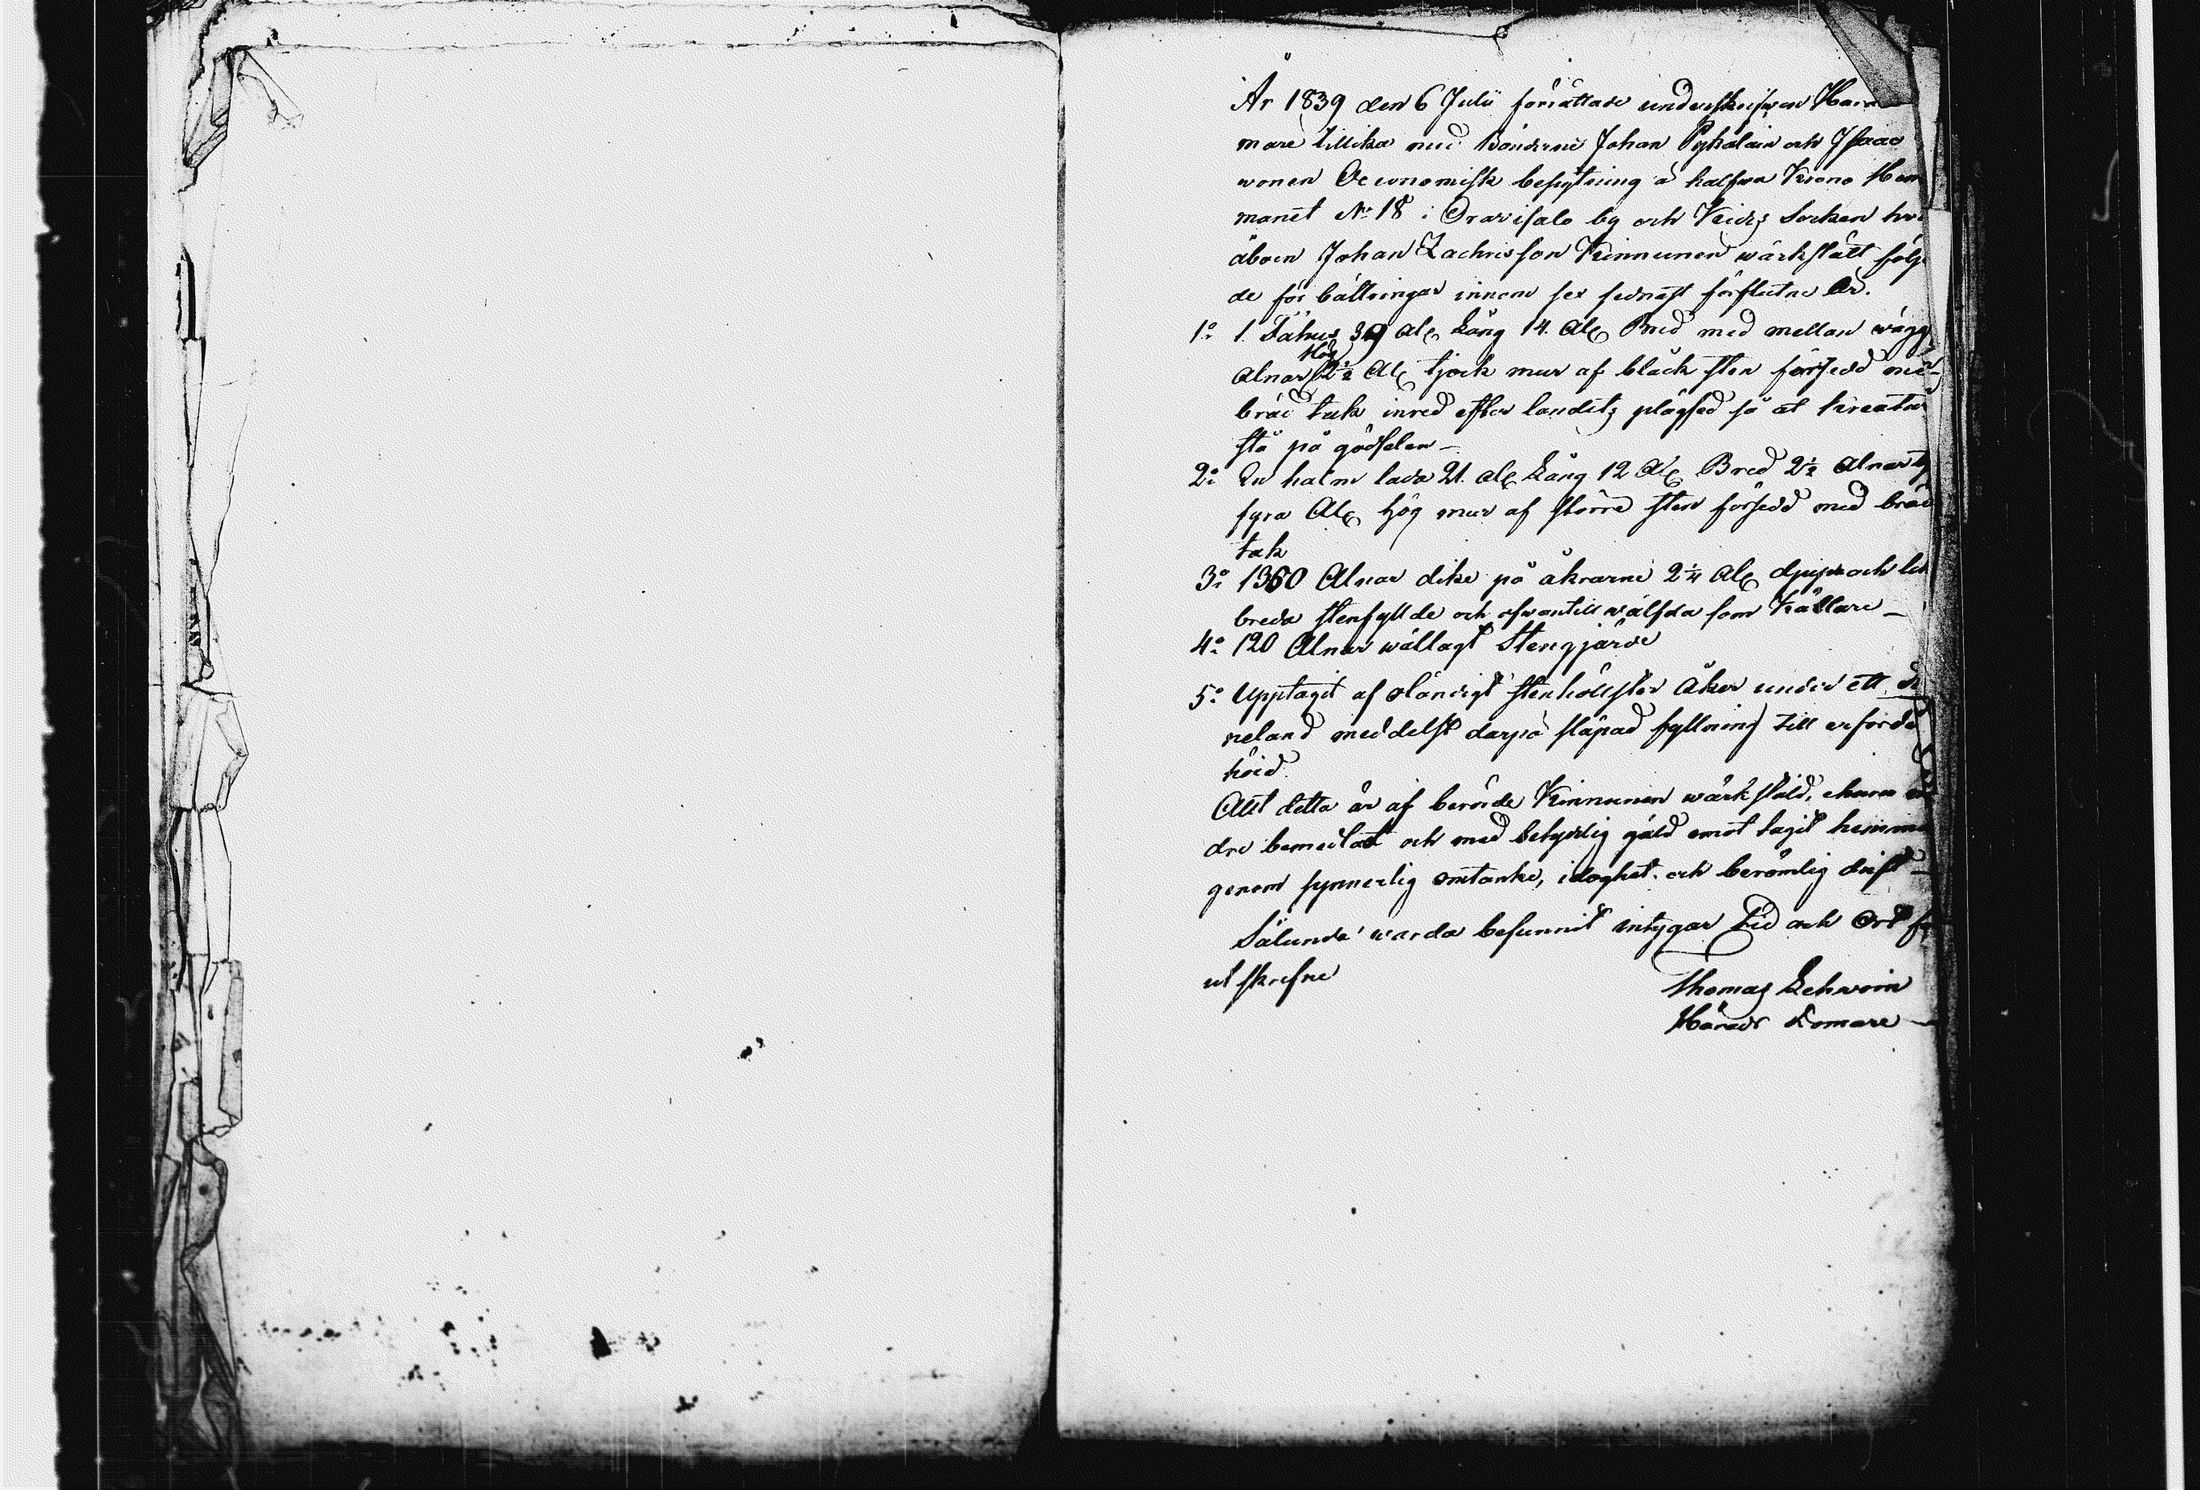 År 1839 den 6 Julii förrättade underskrifven Härad
mare tillika med Bönderne Johan Pykäläin och Isaac
wonen Oeconomisk besigtning å halfwa Krono Hem
manet No 18 i Oravisalo by och Kides Socken hvi
åboen Johan Zachrisson Kinnunen wärkstält följ
de för bättringar innom sex sednast förflutne År.
1o 1. Fähus 39 Al: Lång 14. Al: Bred med mellan wägg
Alnar Hög 2½ Al: tjock mur af bläck sten försedd med
bräd tak inred efter landets plägsed så at kreatur
stå på gödselen –
2o En halm lada 21. Al: Lång 12 Al: Bred 2½ Alnar tj
fyra Al: hög mur af större sten försedd med bräd
tak
3o 1360 Alnar dike på åkrarne 2¼ Al: djupa och lik
breda stenfyllde och ofwantill wälfda som Källare –
4o 120 Alnar wällagt Stengjärde
5o Upptagit af oländigt stenhällster Åker under ett
neland meddelst darpå släpad fyllning till erforder
höid.
Allt detta är af berörde Kinnunen wärkstäld,
dre bemedlat och med betydlig gäld emot tagit hemma
genom synnerlig omtanke, idoghet och berömlig drift –
Sålunde warda befunnit intygar Tid och Ort
ut skrefne
Thomas Lehwoin
Härads Domare –